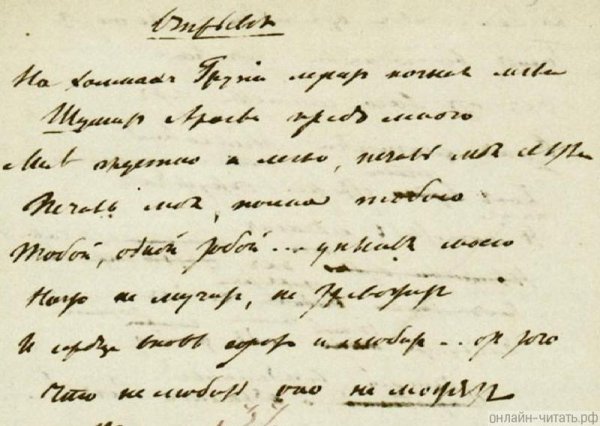 Отрывок
На холмах Грузіи лежит ночная мгла
Шумит Арагва предо мною
Мнѣ грустно и легко, печаль моя свѣтла
Печаль моя, полна тобою
Тобой, одной тобой... унынья моего
Ничто не мучит, не тревожит
И сердце вновь горит и любит... от того
Что не любить оно не может
онлайн-читать.рф